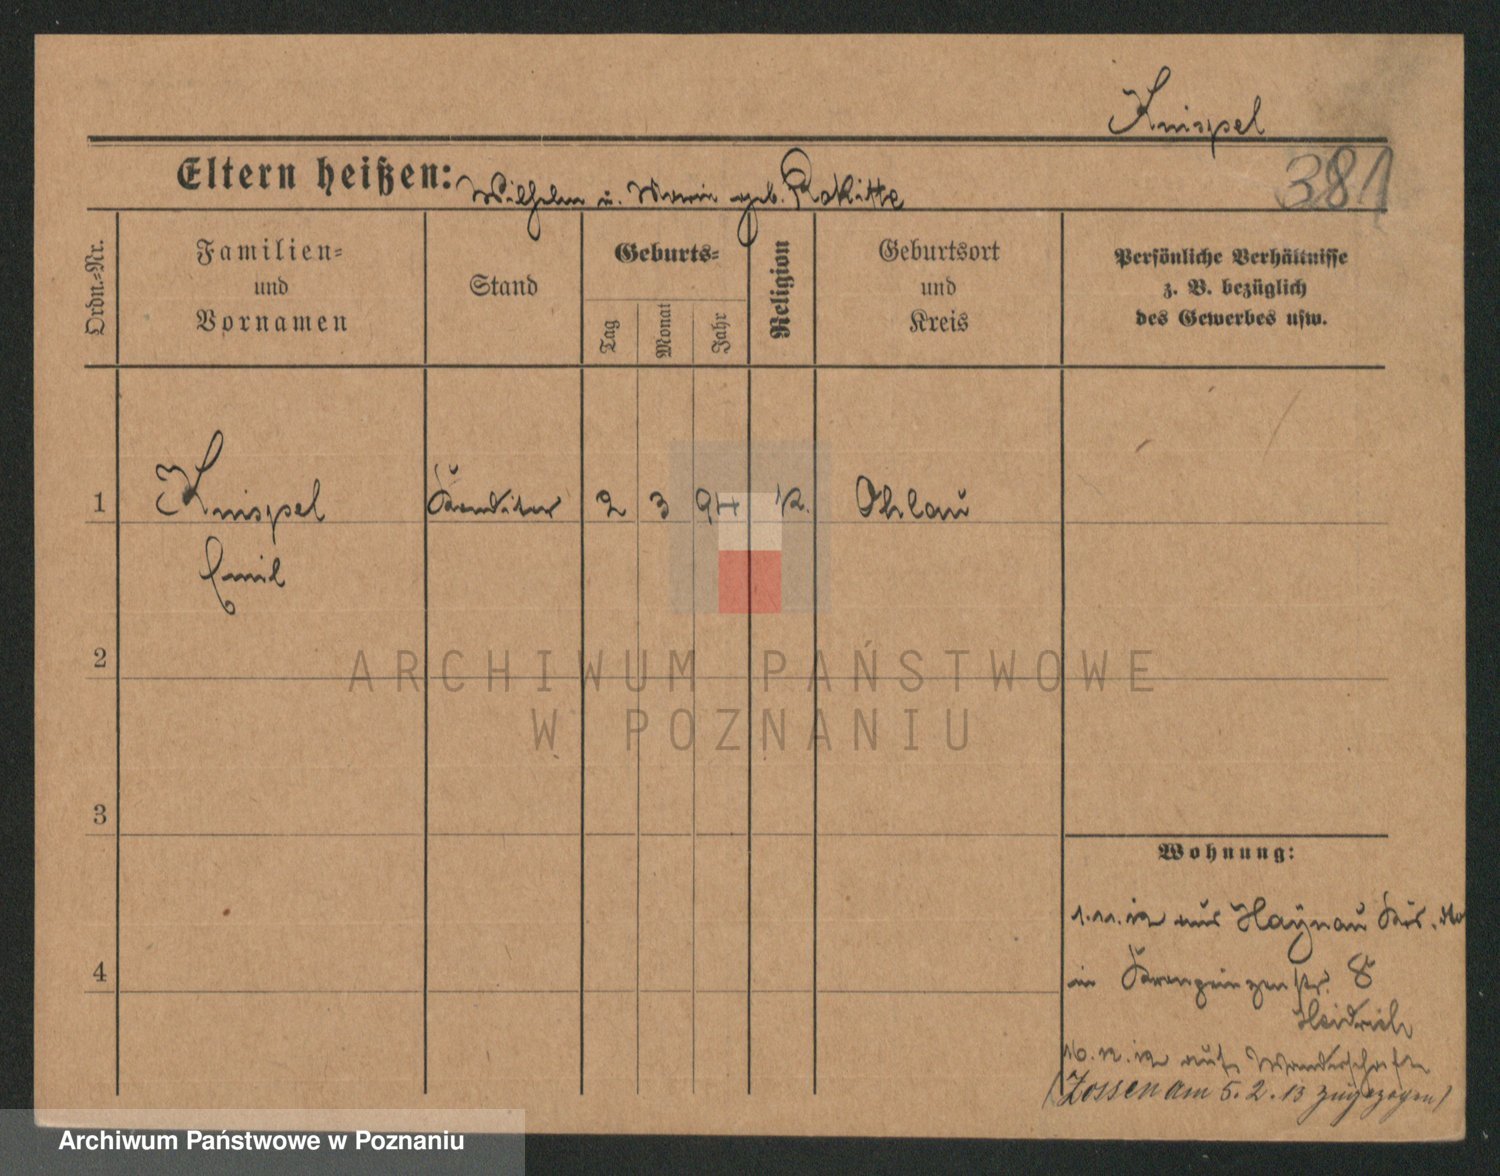 Knispel
381
Eltern heißen: Wilhelm u. Maria geb. Rokitte
Ordn.-Nr.
Familien-
und
Vornamen
Stand
Geburts-
Tag
Monat
Jahr
Religion
Geburtsort
und
Kreis
Persönliche Verhältnisse
z. B. bezüglich
des Gewerbes usw.
1 Knispel Konditor 2 3 94 k. Ohlau
Emil
2
3
4
Wohnung:
1.11.12 aus Haynau
in Kronprinzenstr. 8
Heidrich
16.12.12 auf Wanderschaft
(Zossen am 5.2.13 zugezogen)
ARCHIWUM PAŃSTWOWE
W POZNANIU
Archiwum Państwowe w Poznaniu